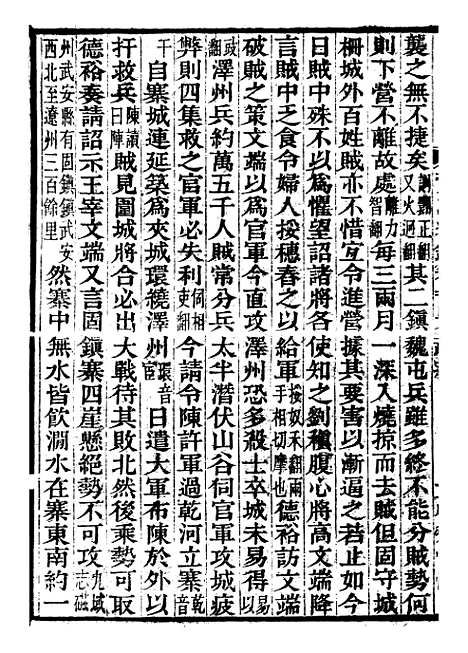 襲之無不捷矣詗翾正翻又火迥翻其二鎮魏屯兵雖多終不能分賊勢何
則下營不離故處離力智翻每三兩月一深入燒掠而去賊但固守城
柵城外百姓賊亦不惜宜令進營據其要害以漸逼之若止如今
日賊中殊不以爲懼望詔諸將各使知之劉稹腹心將高文端降
言賊中乏食令婦人挼穗舂之以給軍挼奴禾翻兩手相切摩也德裕訪文端
破賊之策文端以爲官軍今直攻澤州恐多殺士卒城未易得易以
豉翻澤州兵約萬五千人賊常分兵太半潛伏山谷伺官軍攻城疲
弊則四集救之官軍必失利伺相吏翻今請令陳許軍過乾河立寨乾音
干自寨城連延築爲夾城環繞澤州環音宦日遣大軍布陳於外以
扞救兵陳讀曰陣賊見圍城將合必出大戰待其敗北然後乘勢可取
德裕奏請詔示王宰文端又言固鎮寨四崖懸絕勢不可攻九域志磁
州武安縣有固鎮鎮武安西北至遼州三百餘里然寨中無水皆飲澗水在寨東南約一